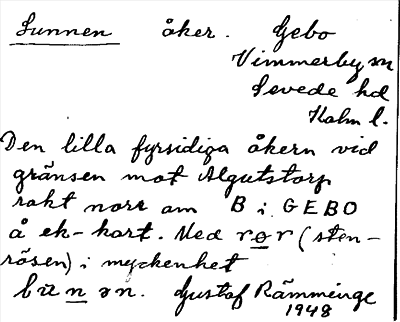 Sunnen åker. Gebo
Vimmerby sn
Sevede hd
Kalm l.
Den lilla fyrsidiga åkern vid
gränsen mot Algutstorp
rakt norr om B i GEBO
å ek-kart. Med rør (sten-
rösen) i myckenhet
bünən. Gustaf Rämminge
1948